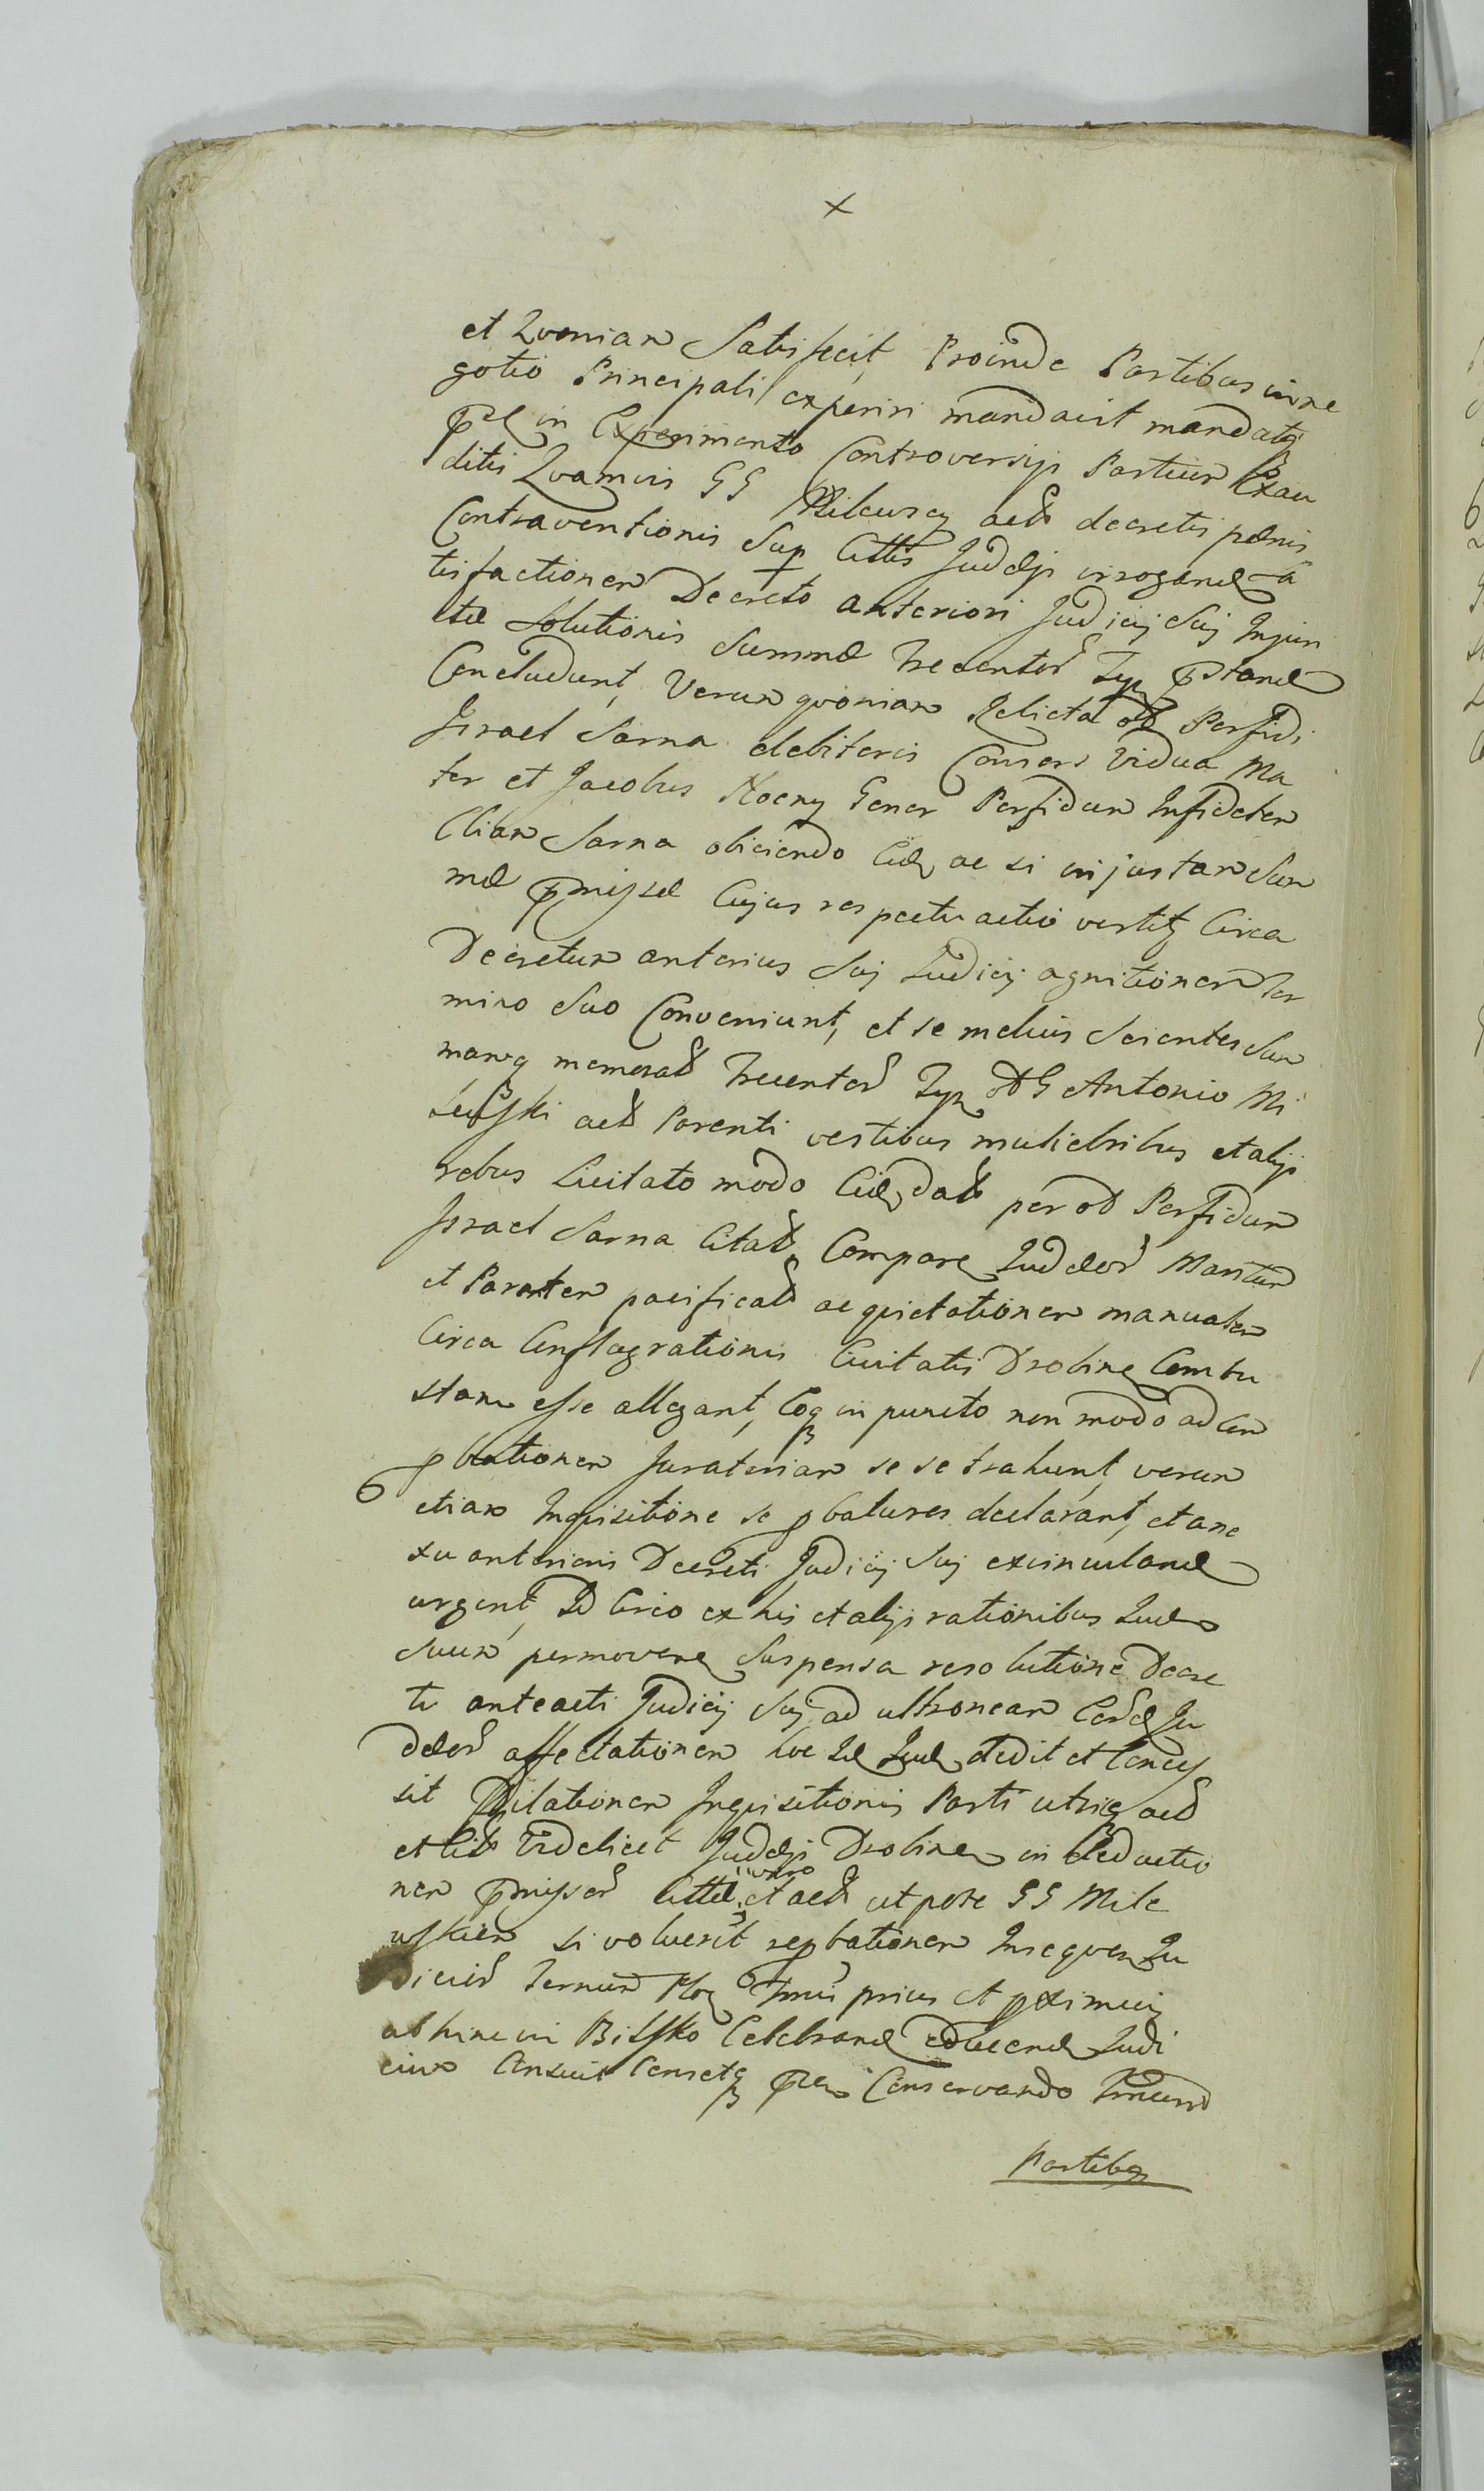 x
et Quoniam Satisfecit, Proinde Partibus in ne
gotio Principali experiri mandavit mandatq
in Experimento Controversijs Partium Exau
ditis Quamvis GG Milewscy decretis pænis
Contraventionis Sup Cittis Judæis irrogand
tisfactionem Decreto anteriori Judicij Sui Injun
Solutionis Summæ trecentor
Concludunt, Verum quoniam Relicta Perfidi
Israel Sarna debitoris Consors Vidua Ma
ter et Jacobus Gener Perfidum Infidelem
Eliam Sarna obiciendo ac si injustam Sum
mæ præmissæ Cujus respectu actio vertit Circa
Decretum anterius Sui Judicij agnitionem ter
mino Suo Conveniunt, et se melius Scientes Sum
mamq memorat trecentor G Antonio Mi
lewski Parenti vestibus muliebribus et alijs
rebus Licitato modo dat per Perfidum
Israel Sarna Citat Compare Judæor Maritum
et Parentem pacificat ac quietationem manualem
Circa Conflagrationis Civitatis Drobine Combu
stam esse allegant, Eoq in puncto non modo ad Com
pbationem Juratoriam se se trahunt, verum
etiam Inquisitione se pbaturos declarant, et a ne
xu anterioris Decreti Judicij Sui exvinculand
urgent, Id Circo ex his et alijs rationibus Jud
Suum permoven Suspensa resolutione Decre
ti anteacti Judicij Sui ad ultroneam Ju
dæor affectationem dedit et Conces
sit Dilationem Inquisitionis Parti utriq
et Videlicet Judæis Drobinen in deductio
nem præmissor vero
et utpote GG Mile
wskim si voluerit repbationem Insequen Ju
dicior Termin prius et pximius
abhinc in Bilsko Celebrand educend Judi
cium Censuit Censetq Conservando
Partibq